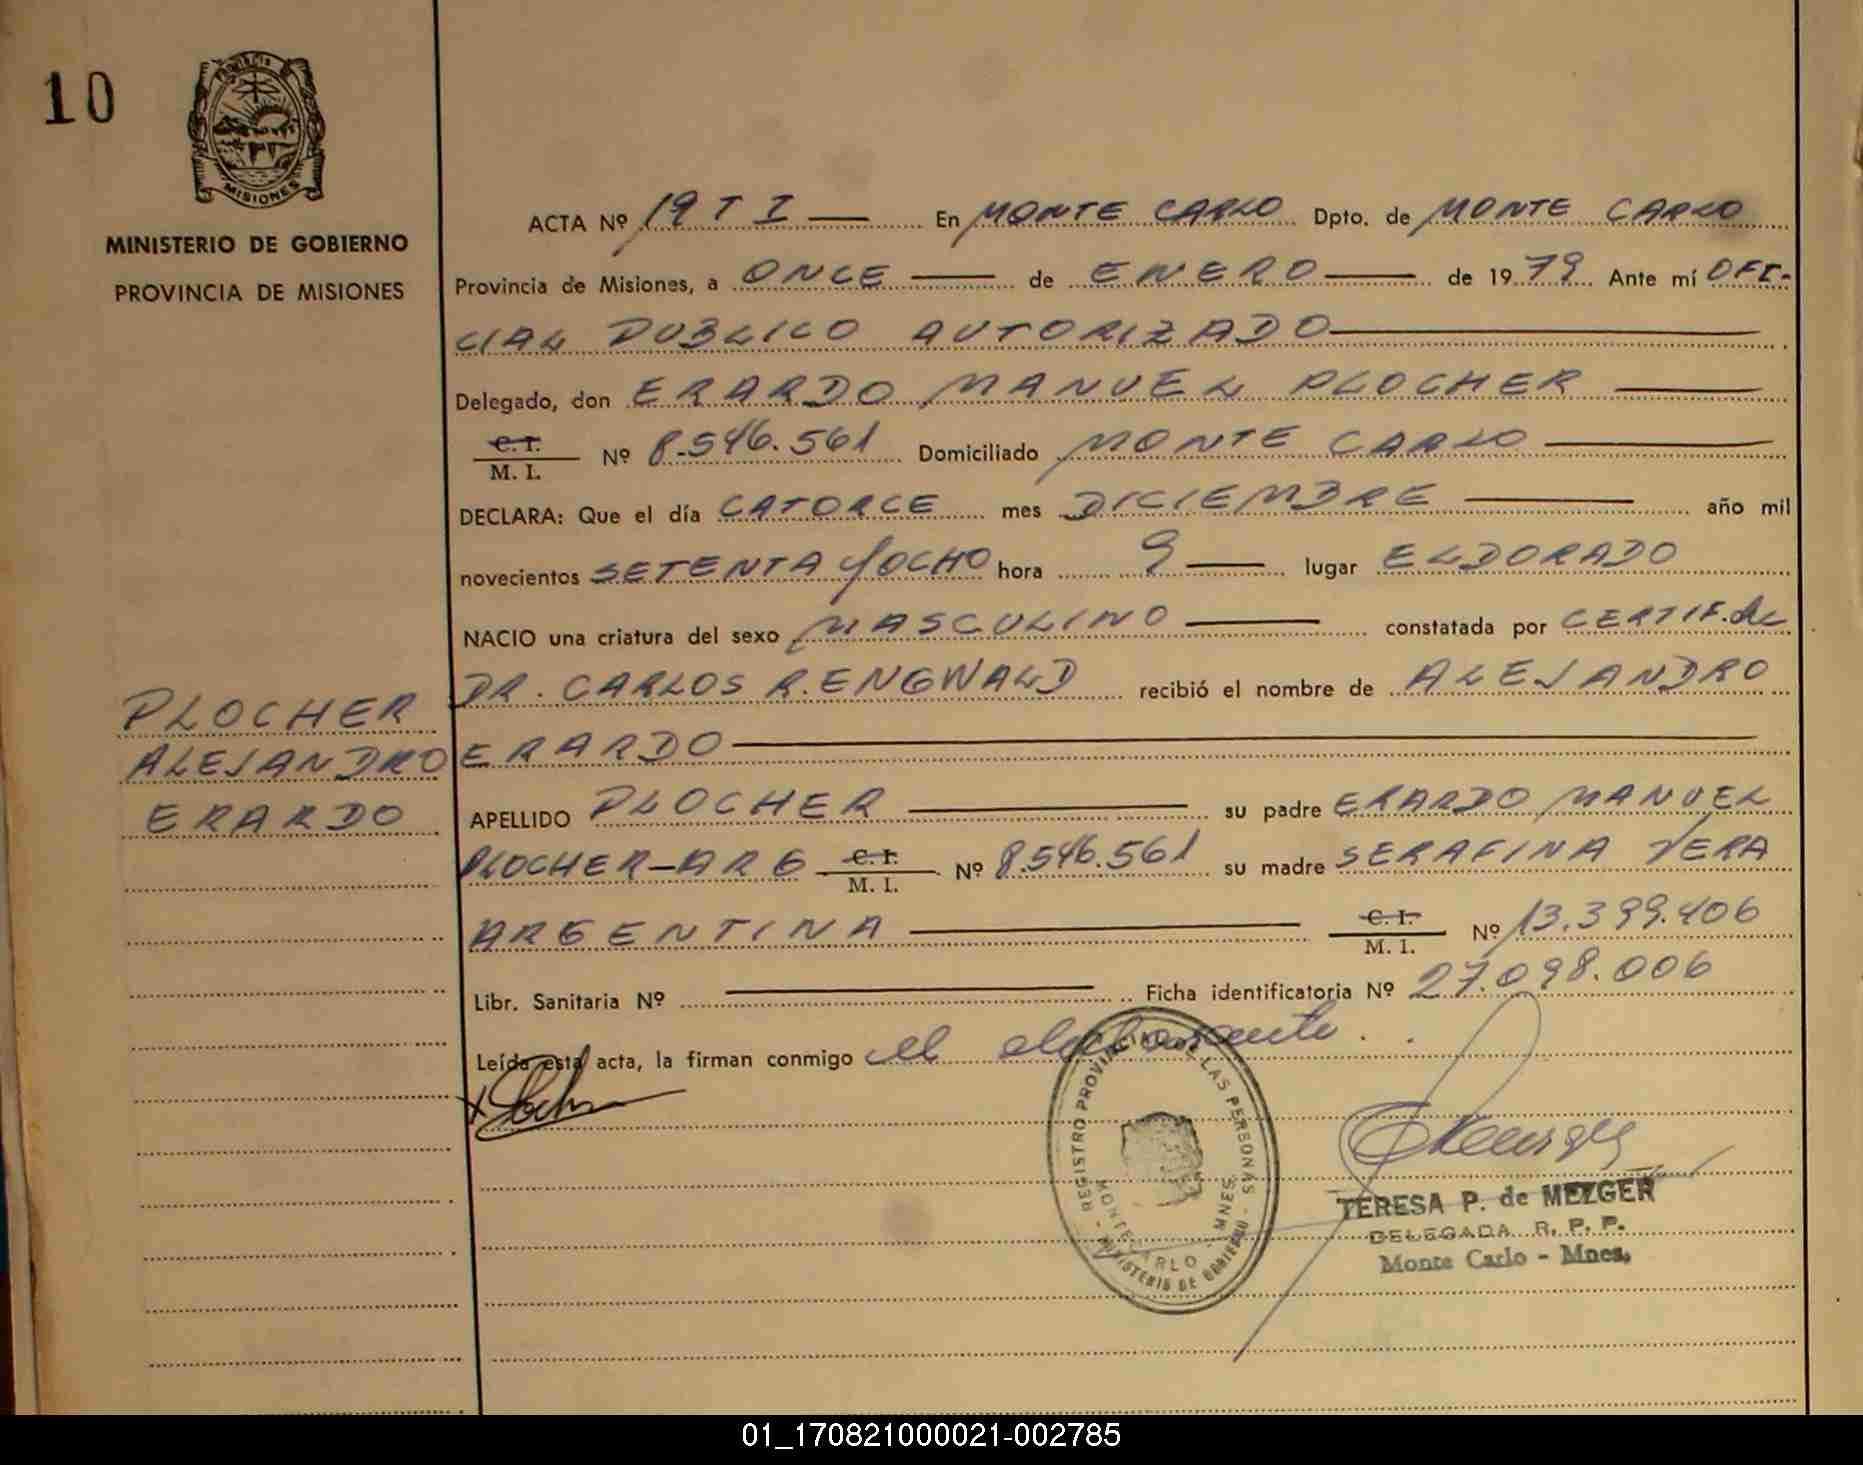 10
PROVINCIA DE
MISIONES
MINISTERIO DE GOBIERNO
PROVINCIA DE MISIONES
PLOCHER
ALEJANDRO
ERARDO
ACTA Nº 19 T I — En MONTE CARLO Dpto. de MONTE CARLO
Provincia de Misiones, a ONCE — de ENERO — de 1979 Ante mí OFI-
CIAL PUBLICO AUTORIZADO —
Delegado, don ERARDO MANUEL PLOCHER —
C. I.
M. I. Nº 8.546.561 Domiciliado MONTE CARLO —
DECLARA: Que el día CATORCE mes DICIEMBRE — año mil
novecientos SETENTA Y OCHO hora 9 — lugar ELDORADO
NACIO una criatura del sexo MASCULINO — constatada por CERTIF. del
DR. CARLOS R. ENGWALD recibió el nombre de ALEJANDRO
ERARDO —
APELLIDO PLOCHER — su padre ERARDO MANUEL
PLOCHER-ARG C. I. M. I. Nº 8.546.561 su madre SERAFINA VERA
ARGENTINA — C. I. M. I. Nº 13.399.406
Libr. Sanitaria Nº — Ficha identificatoria Nº 27.098.006
Leída esta acta, la firman conmigo el declarante.
REGISTRO PROVINCIAL DE LAS PERSONAS
MONTE CARLO - MNES.
MINISTERIO DE GOBIERNO
TERESA P. de MEZGER
DELEGADA R. P. P.
Monte Carlo - Mnes.
01_170821000021-002785